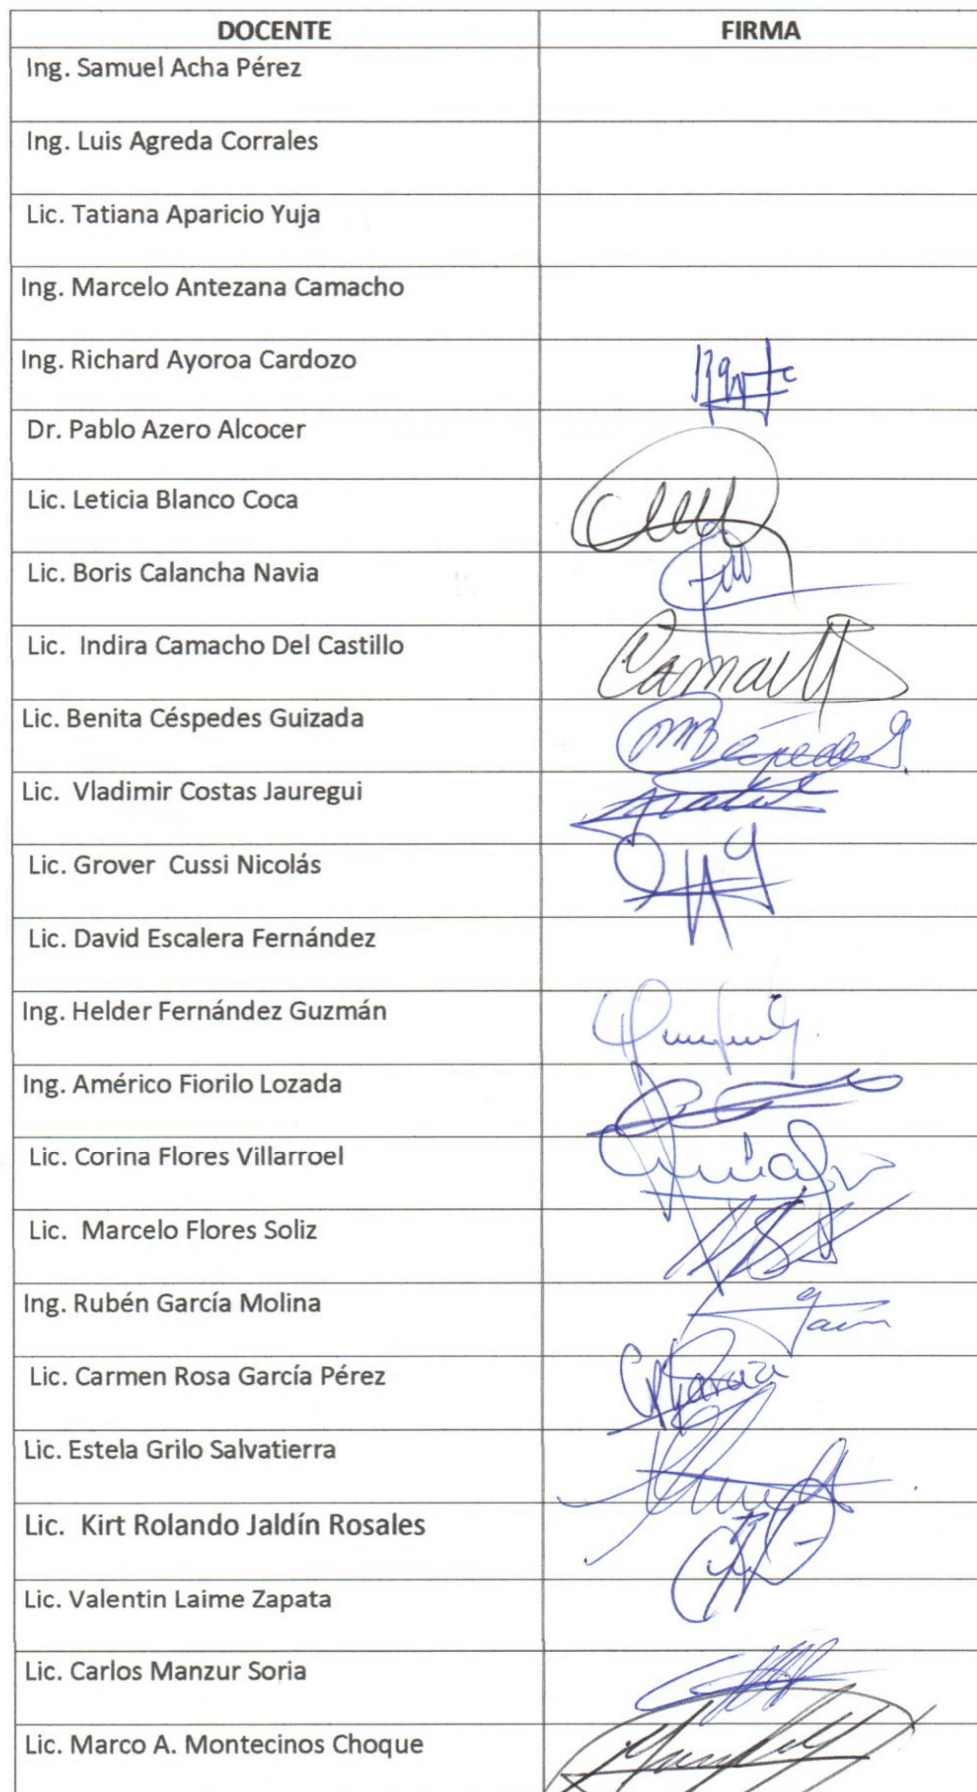 DOCENTE FIRMA
Ing. Samuel Acha Pérez
Ing. Luis Agreda Corrales
Lic. Tatiana Aparicio Yuja
Ing. Marcelo Antezana Camacho
Ing. Richard Ayoroa Cardozo
Dr. Pablo Azero Alcocer
Lic. Leticia Blanco Coca
Lic. Boris Calancha Navia
Lic. Indira Camacho Del Castillo
Lic. Benita Céspedes Guizada
Lic. Vladimir Costas Jauregui
Lic. Grover Cussi Nicolás
Lic. David Escalera Fernández
Ing. Helder Fernández Guzmán
Ing. Américo Fiorilo Lozada
Lic. Corina Flores Villarroel
Lic. Marcelo Flores Soliz
Ing. Rubén García Molina
Lic. Carmen Rosa García Pérez
Lic. Estela Grilo Salvatierra
Lic. Kirt Rolando Jaldín Rosales
Lic. Valentin Laime Zapata
Lic. Carlos Manzur Soria
Lic. Marco A. Montecinos Choque